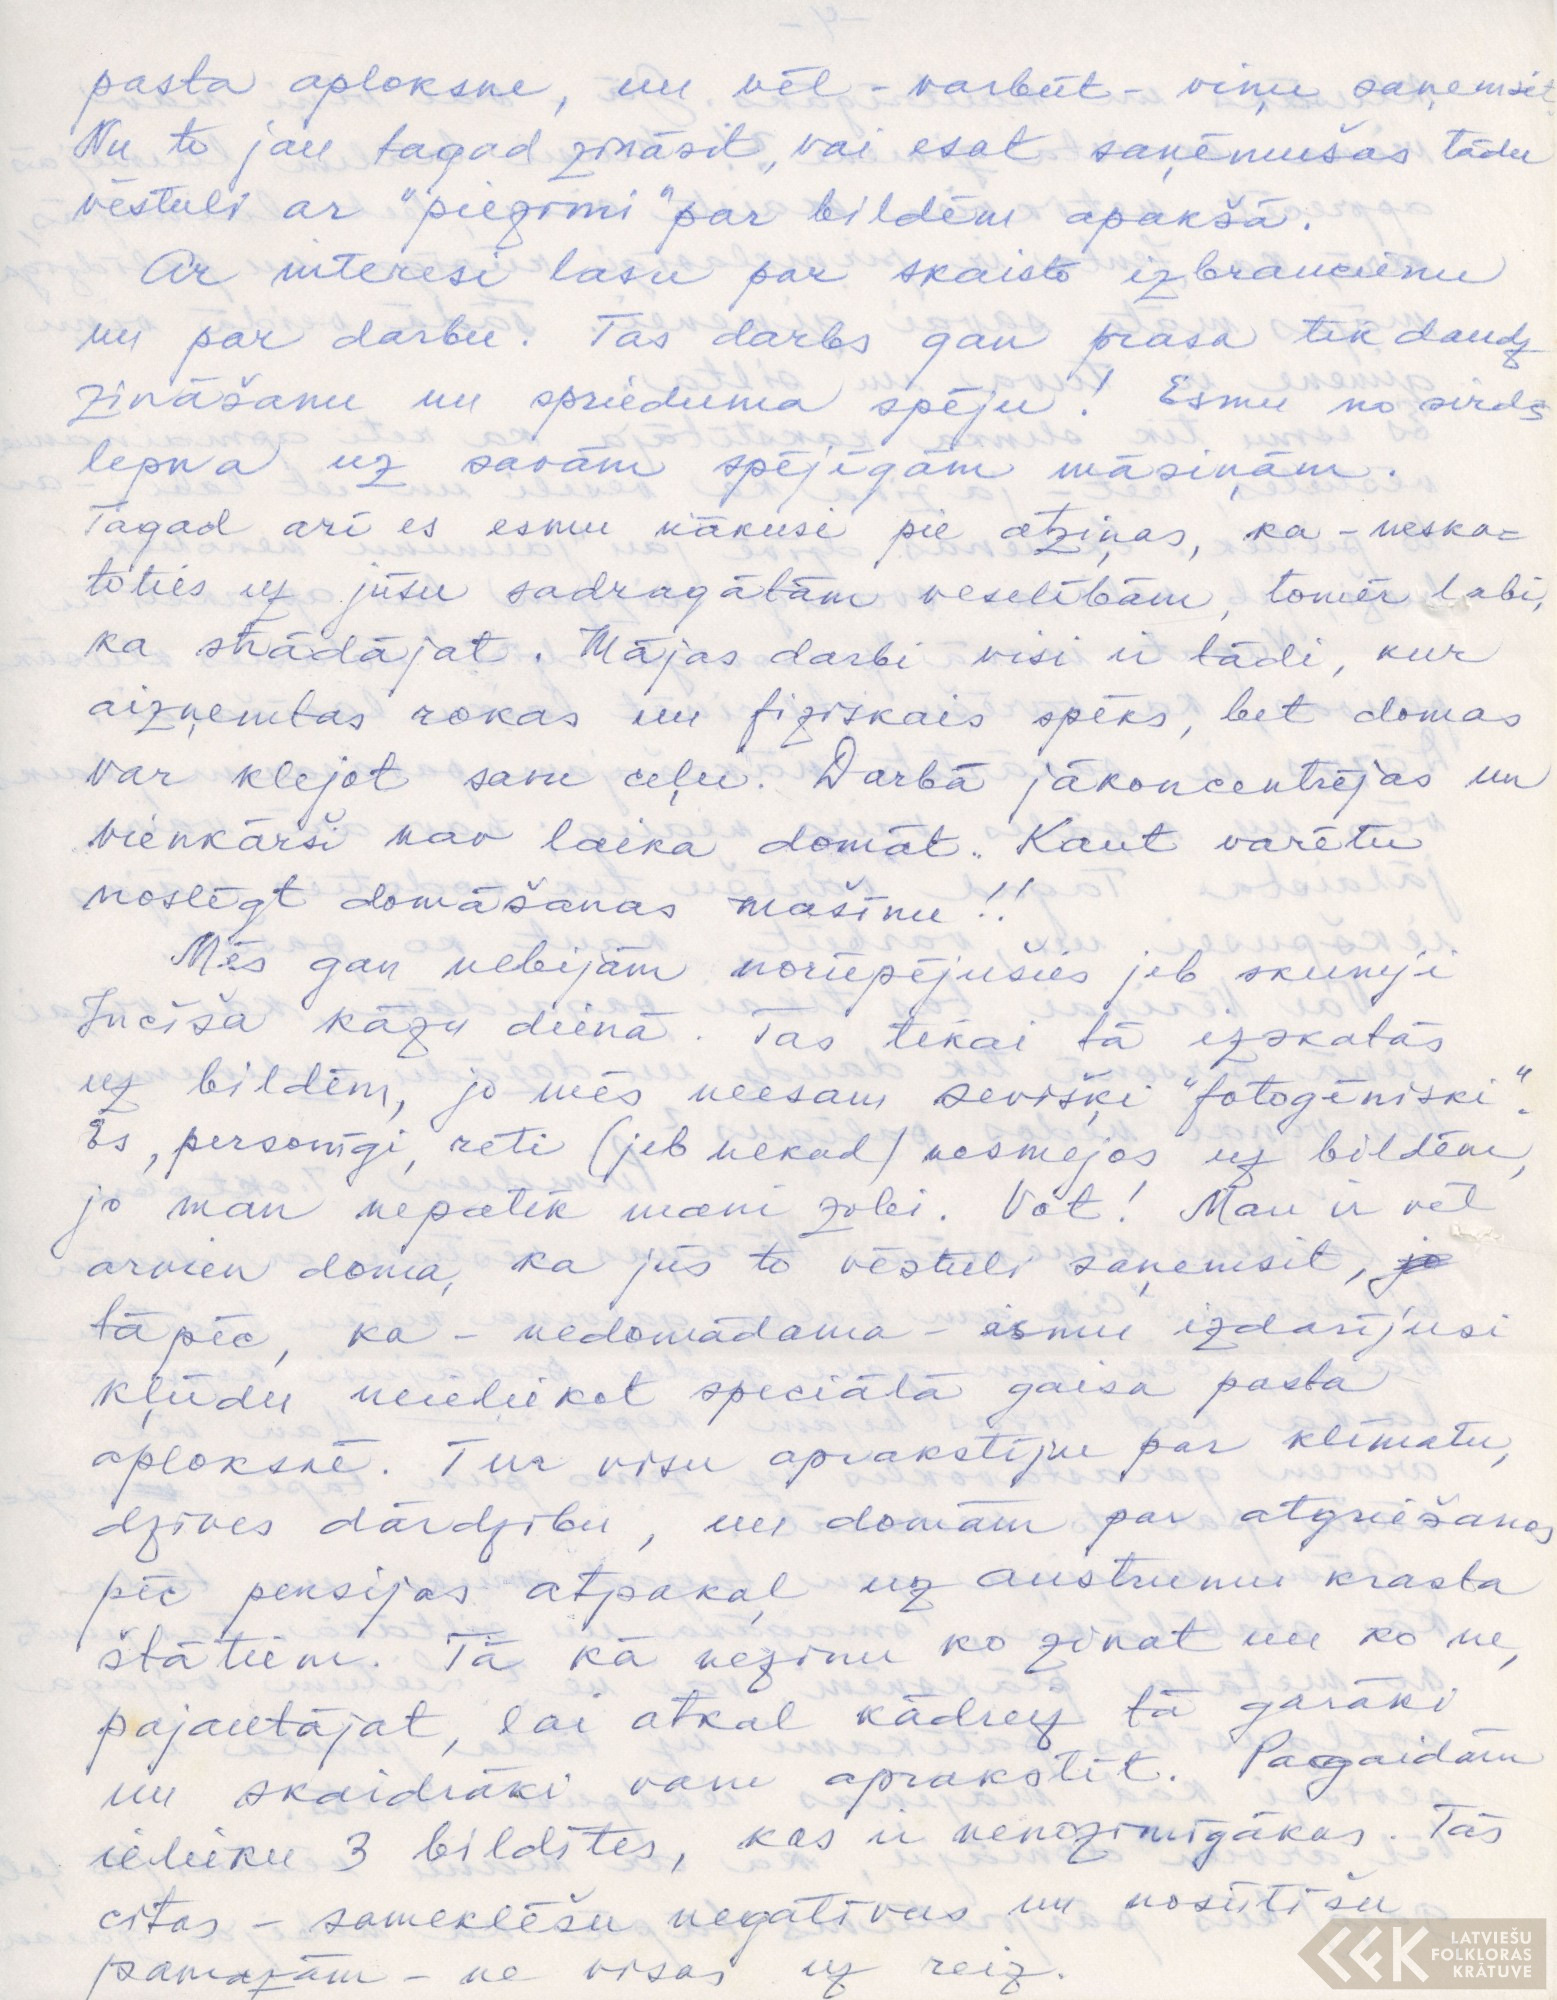 pasta aploksne, un vēl - varbūt - viņu saņemsit.
Nu to jau tagad zināsit, vai esat saņēmušas tādu
vēstuli ar "piezīmi" par bildēm apakšā.
Ar interesi lasu par skaisto izbraucienu
un par darbu. Tas darbs gan prasa tik daudz
zināšanu un sprieduma spēju! Esmu no sirds
lepna uz savām spējīgām māsiņām.
Tagad arī es esmu nākusi pie atziņas, ka - neska=
toties uz jūsu sadragātām veselībām, tomēr labi,
ka strādājat. Mājas darbi visi ir tādi, kur
aizņemtas rokas un fiziskais spēks, bet domas
var klejot savu ceļu. Darbā jākoncentrējas un
vienkārši nav laika domāt. Kaut varētu
noslēgt domāšanas mašīnu!!
Mēs gan nebijām norūpējušies jeb skumji
Incīša kāzu dienā. Tas tikai tā izskatās
uz bildēm, jo mēs neesam sevišķi "fotogēniski".
Es, personīgi, reti (jeb nekad) nesmejos uz bildēm,
jo man nepatīk mani zobi. Vot! Man ir vēl
arvien doma, ka jūs to vēstuli saņemsit, jo
tāpēc, ka - nedomādama - esmu izdarījusi
kļūdu neieliekot speciālā gaisa pasta
aploksnē. Tur visu aprakstīju par klimatu,
dzīves dārdzību, un domām par atgriešanos
pēc pensijas atpakaļ uz austrumu krasta
štatiem. Tā kā nezinu ko zinat un ko ne,
pajautājat, lai atkal kādreiz tā garāki
un skaidrāki vam aprakstīt. Pagaidām
ielieku 3 bildītes, kas ir nenozīmīgākas. Tās
citas - sameklēšu negatīvus un nosūtīšu
pamazām - ne visas uz reiz.
LATVIEŠU
FOLKLORAS
KRĀTUVE